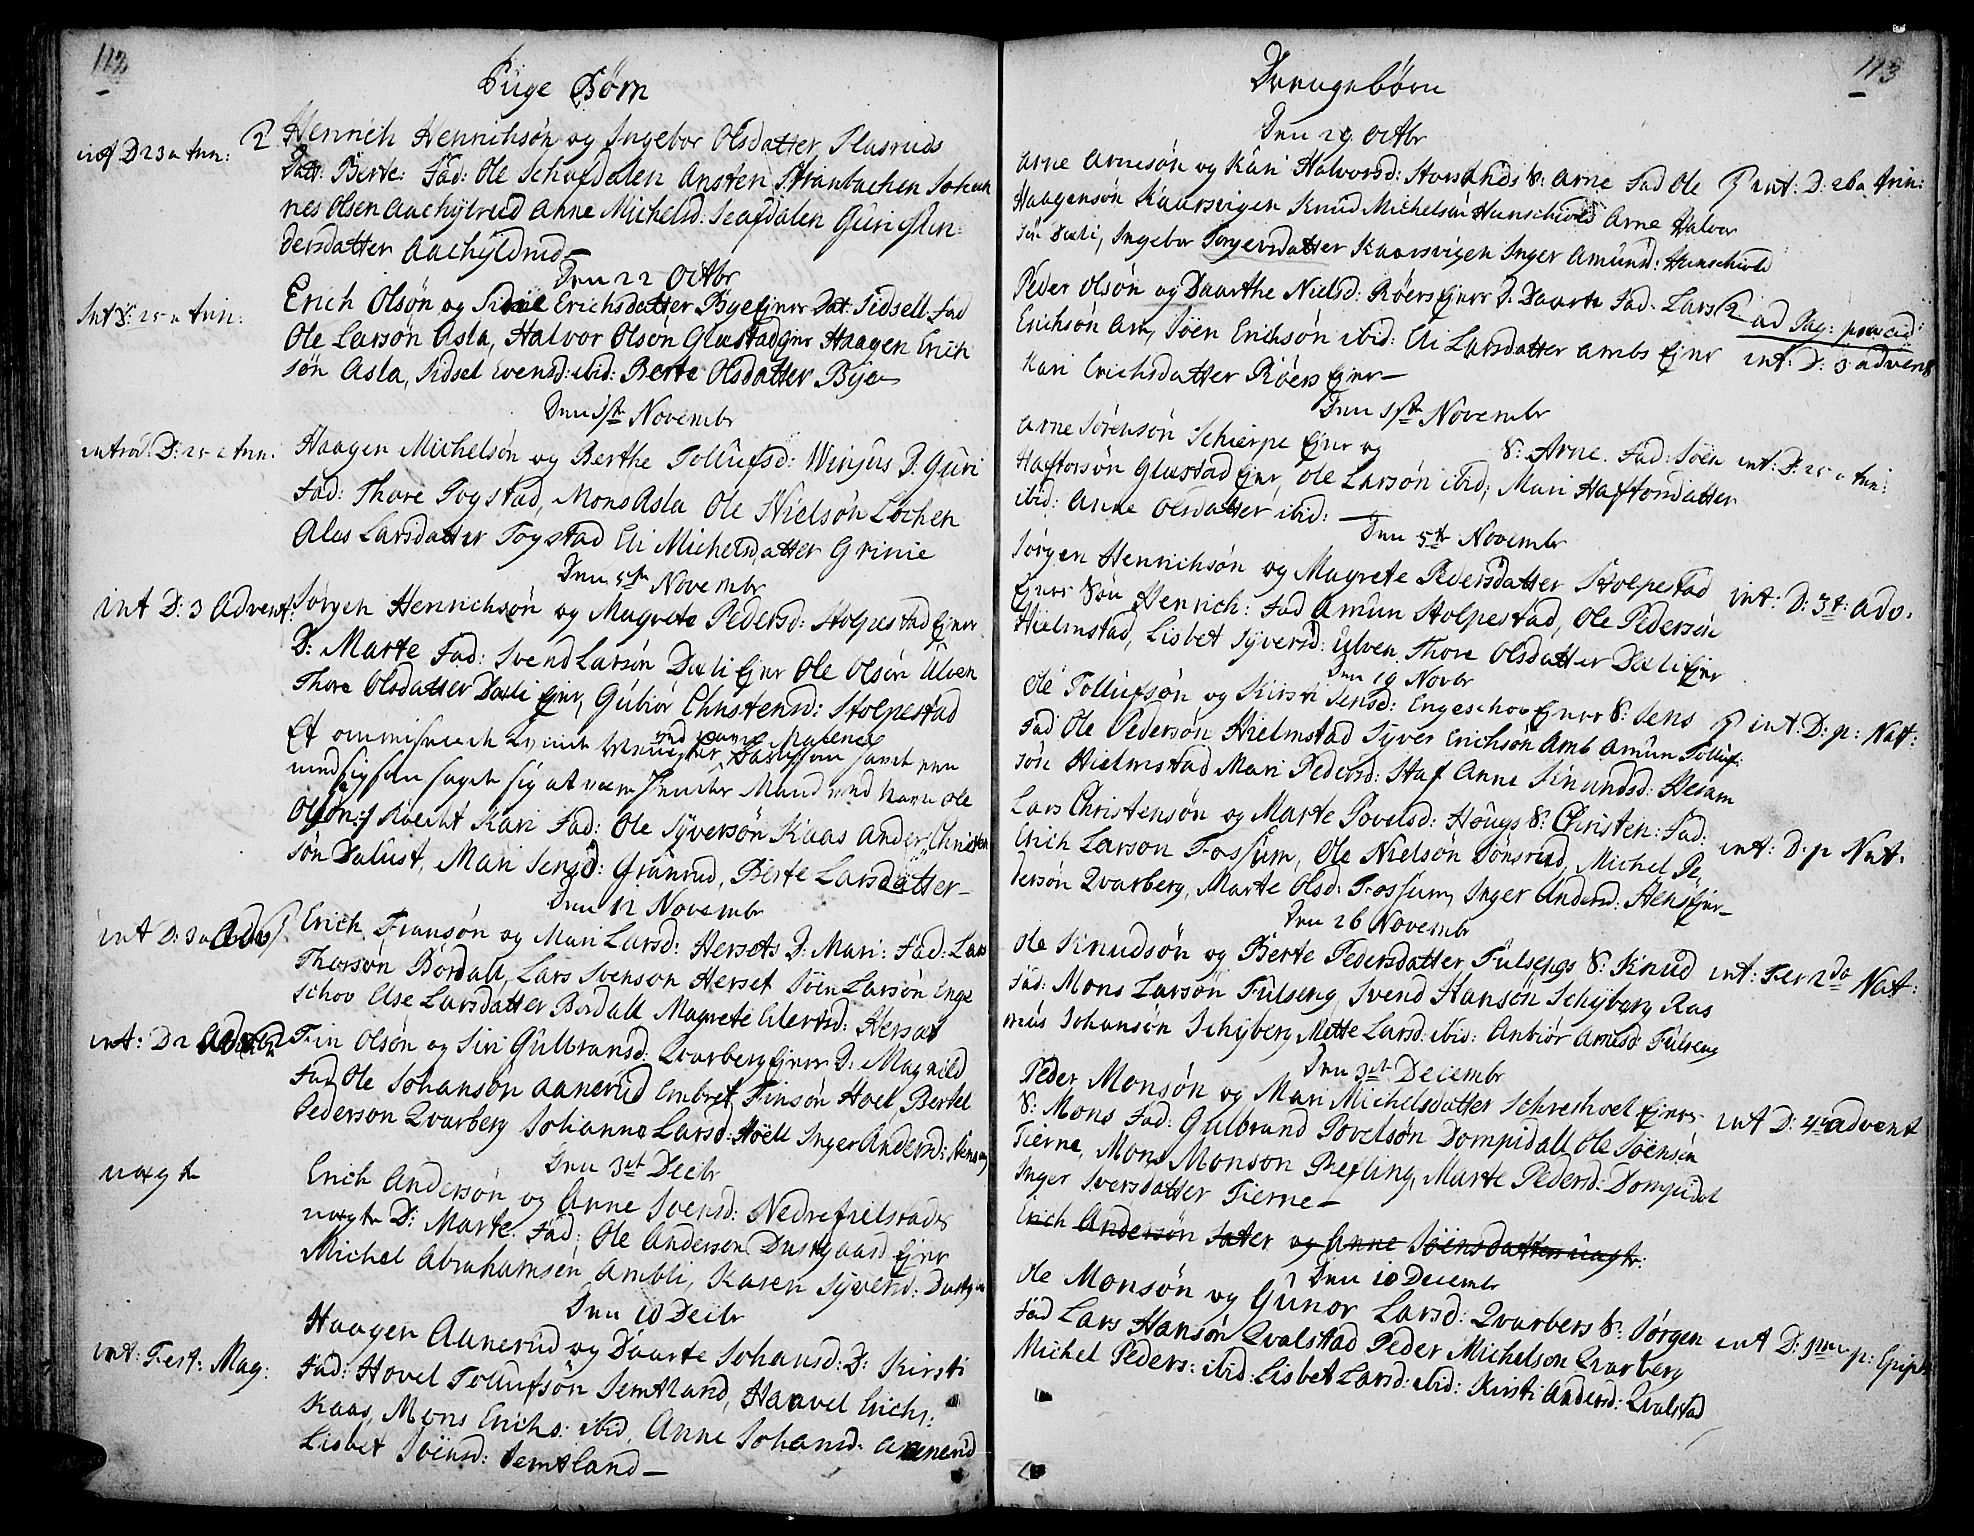 112
Piige Børn
int D 23 a trin: Henrich Henrichsøn og Ingebor Olsdatter Plasruds
Datt: Berte: Fad: Ole Schafdalen Ansten Stranbachen Johan
nes Olsen Aachyldrud Anne Michelsd: Scafdalen Guri Gun
dersdatter Aachyldrud
Den 22 Octbr
Int D: 25 a trin: Erich Olsøn og Erichsdatter Bye Ejner Dat: Sidsell Fad
Ole Larsøn Asla, Halvor Olsøn Glæstad Ejner Haagen Erich
søn Asla, Sidsel Svensd: ibid: Berte Olsdatter Bye
Den 1ste Novembr
introd: D: 25 a trin: Haagen Michelsøn og Berthe Tollufsd: Winjus D. Guri
Fad: Thore Togstad, Mons Asla Ole Nielsøn Lochen
Ales Larsdatter Togstad Eli Michelsdatter Grinie
Den 5te Novembr
int D: 3 Advent: Jørgen Henrichsøn og Magrete Pedersd: Stolpestad Ejner
D: Marte Fad: Svend Larsøn Dæli Ejner Ole Olsøn Ulven
Thore Olsdatter Dæli Ejner, Gubiør Christensd: Stolpestad
Et
ved navn Malene
sagde sig at være Mand ved Navn Ole
Olsøn Kari Fad: Ole Syversøn Kaas Ander Christen
søn Dalust, Mari Jensd: Granrud, Berte Larsdatter
Den 12 Novembr
int D: 3 a Erich Fransøn og Mari Larsd: Hersets D: Mari: Fad: Lars
Thorsøn Børdall, Lars Svenson Herset Søen Larsøn Enge
schov Else Larsdatter Børdall Magrete Herset
int: D 2 Fin Olsøn og Siri Gulbransd: Qvarberg Ejner D: Magnild
Fad Ole Johansøn Aanerud Embret Finsøn Hoel, Bertel
Pederson Qvarberg Johanne Larsd: Høell Inger Andersd:
Den 3de Decbr
uægte Erich Andersøn og Anne Svensd: Nedrefielstads
uægte D: Marte. Fad: Ole Anderson Dustgaard Ejner
Michel Abrahamsen Ambli, Karen Syversd:
Den 10 Decbr
int: Fest: Mag: Haagen Aanerud og Daarte Johansd: D: Kirsti
Fad: Hovel Tollufsøn Semtland, Haavel Erichs:
Kaas, Mons Erichs: ibid, Anne Johansd: Aanerud
Lisbet Søensd: Semtland
113
Drengebørn
Den 29 Octbr
Arne Arnesøn og Kari Halvorsd: S: Arne Fad Ole int: D: 26 a trin:
Haagensøn Kaarsvigen Knud Michelsøn Hunschiold Arne Halvor
søn Dæli, Ingebor Torgersdatter Kaarsvigen Inger Amunds: Hunschiold
Peder Olsøn og Daarthe Nielsd: Røers Ejner D: Daarte Fad: Lars ad Pag: præced:
Erichsøn Am, Søen Erichsøn ibid: Eli Larsdatter Ambs Ejner int: D: 3 advent
Kari Erichsdatter Røers Ejner
Den 1ste Novembr
Arne Sørensøn Schierpe Ejner og S: Arne. Fad: Søen int: D: 25 a trin:
Haftorsøn Glæstad Ejner, Ole Larsøn ibid, Mari Haftorsdatter
ibid: Anne Olsdatter ibid:
Den 5te Novembr
Jørgen Henrichsøn og Magrete Pedersdatter Stolpestad int: D: 3 t: adv.
Ejner Søn Henrich: Fad Amun Stolpestad, Ole Pedersøn
Hielmstad, Lisbet Syversd: Ulven Thore Olsdatter Dæli Ejner
Den 19 Novbr
Ole Tollufsøn og Kirsti Jensd: Engeschov Ejner S: Jens int: D: p: Nat:
Fad Ole Pedersøn Hielmstad Syver Erichsøn Amb Amun Tolluf
søn Hielmstad Mari Pedersd: Staf Anne Simundsd: Hesam
Lars Christensøn og Marte Povelsd: Hougs S: Christen: Fad: int: D: p Nat:
Erich Larson Fossum, Ole Nielsøn Jønsrud, Michel Pe
dersøn Qvarberg, Marte Olsd: Fossum, Inger Andersd: Ejner
Den 26 Novembr
Ole Knudsøn og Berte Pedersdatter Fulsengs S: Knud int: Fer 2da Nat:
Fad: Mons Larsøn Fulseng Svend Hansøn Schyberg Ras
mus Johansøn Schyberg Mette Larsd: ibid: Anbiør Arnesd Fulseng
Den 3de Decembr
Peder Monsøn og Mari Michelsdatter Schreshoel Ejner int D: 4 advent
S: Mons Fad: Gulbrand Povelsøn Dompidall Ole Søensøn
Tierne, Mons Monson Refling, Marte Pedersd: Dompidal
Inger Iversdatter Tierne
Erich Andersøn Sater og Anne Søensdatter uægte
Den 10 Decembr
Ole Monsøn og Gunor Larsd: Qvarbers S: Jørgen int D: p: Epiph
Fad Lars Hansøn Qvalstad Peder Michelson Qvarberg
Michel Peders: ibid: Lisbet Larsd: ibid: Kirsti Andersd: Qvalstad